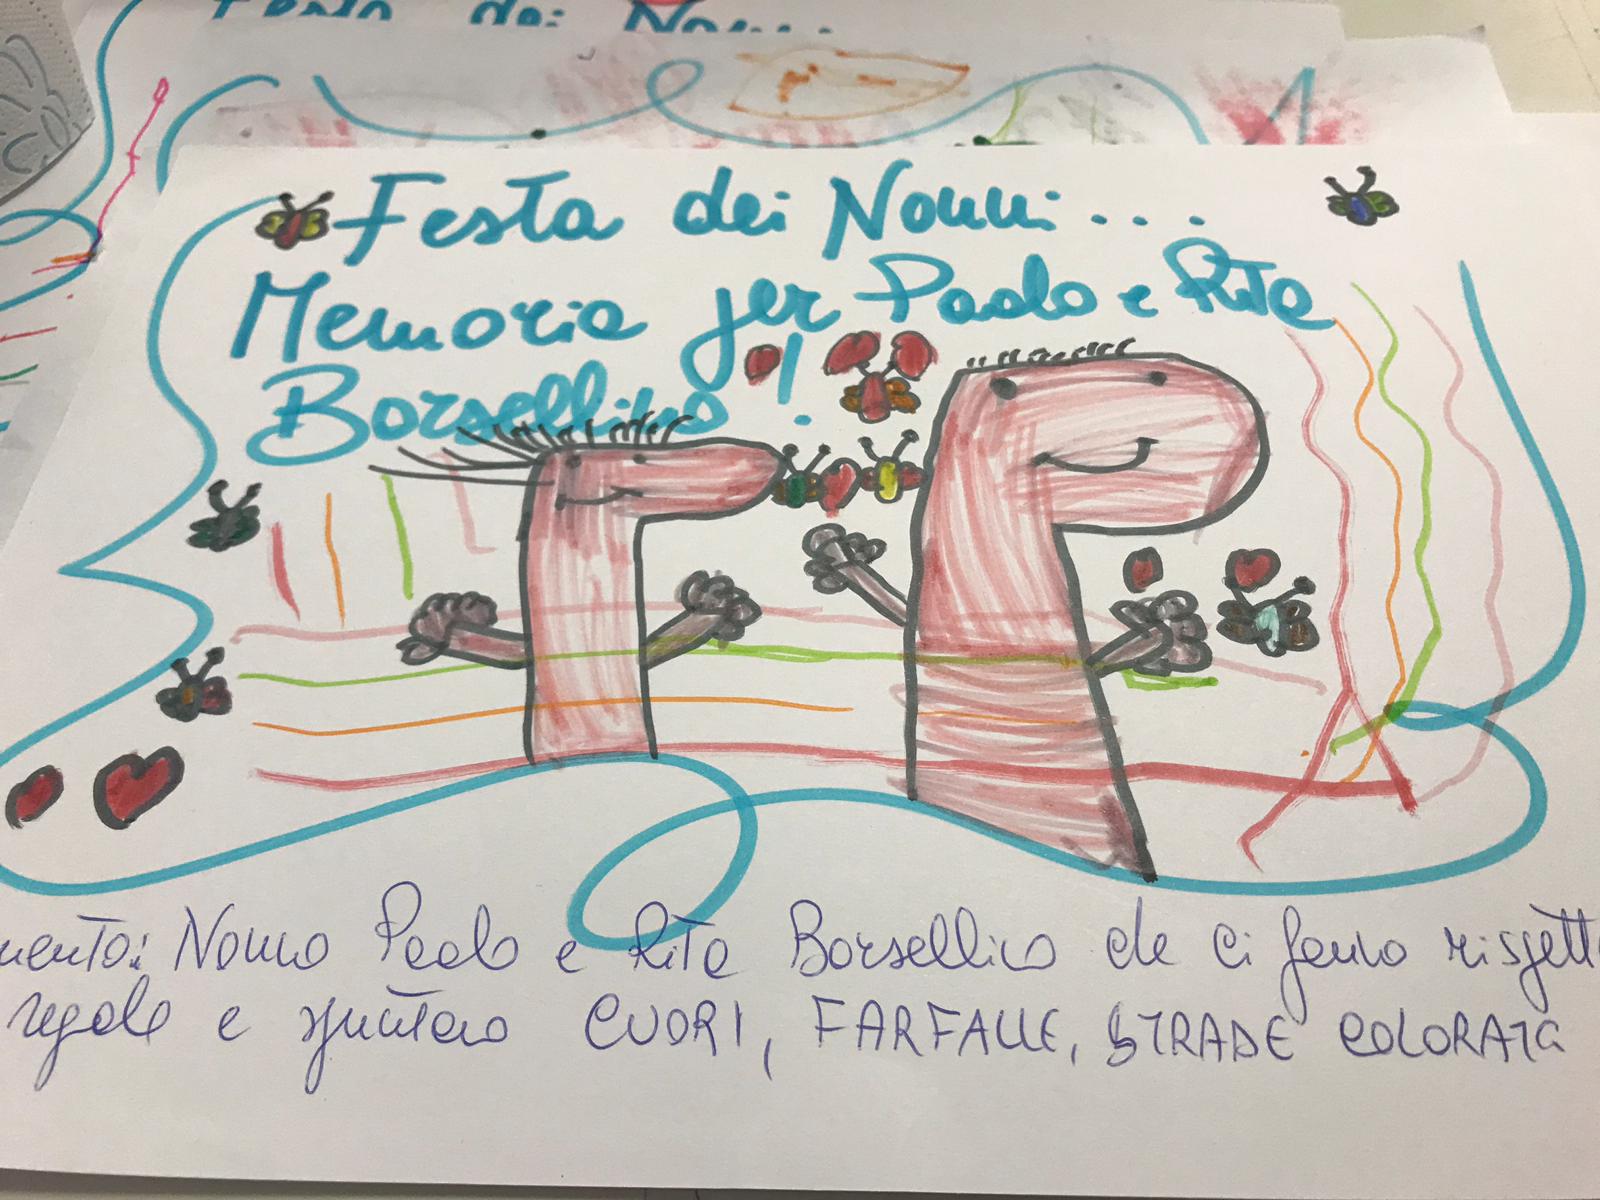 Festa dei Nonni...
Memoria per Paolo e Rita
Borsellino!
mento: Nonno Paolo e Rita Borsellino che ci fanno rispett
regole e spuntano CUORI, FARFALLE, STRADE COLORATE